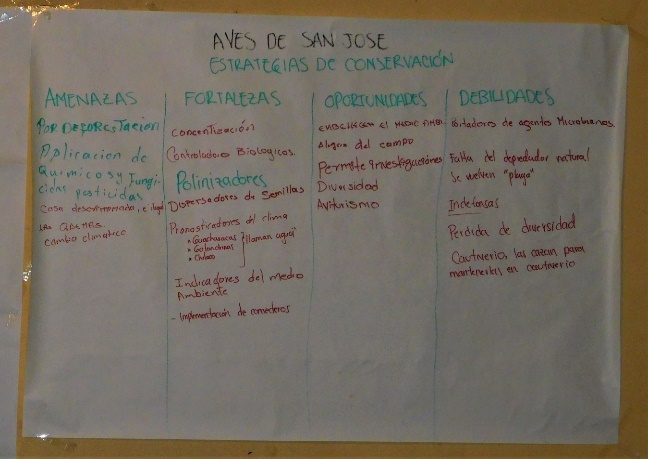 AVES DE SAN JOSE
ESTRATEGIAS DE CONSERVACIÓN
AMENAZAS
POR DEFORESTACION
Aplicacion de
Quimicos y Fungi-
cidas pesticidas
Casa desordenada, e ilegal
LAS QUEMAS.
cambio climatico
FORTALEZAS
Concentización
Controladores Biologicos.
Polinizadores
Dispersadores de Semillas
Pronosticadores del clima
• Guacharacas
• Golondrinas
llaman agua"
Indicadores del medio
Ambiente
- Implementación de comederos
OPORTUNIDADES
EMBELLECEN EL MEDIO AMBI.
Alegria del campo
Permite investigaciones
Diversidad
Aviturismo
DEBILIDADES
Portadores de agentes Microbianos.
Falta del depredador natural
Se vuelven "plaga"
Indefensas
Perdida de diversidad
Cautiverio, las cazan para
mantenerlas en cautiverio